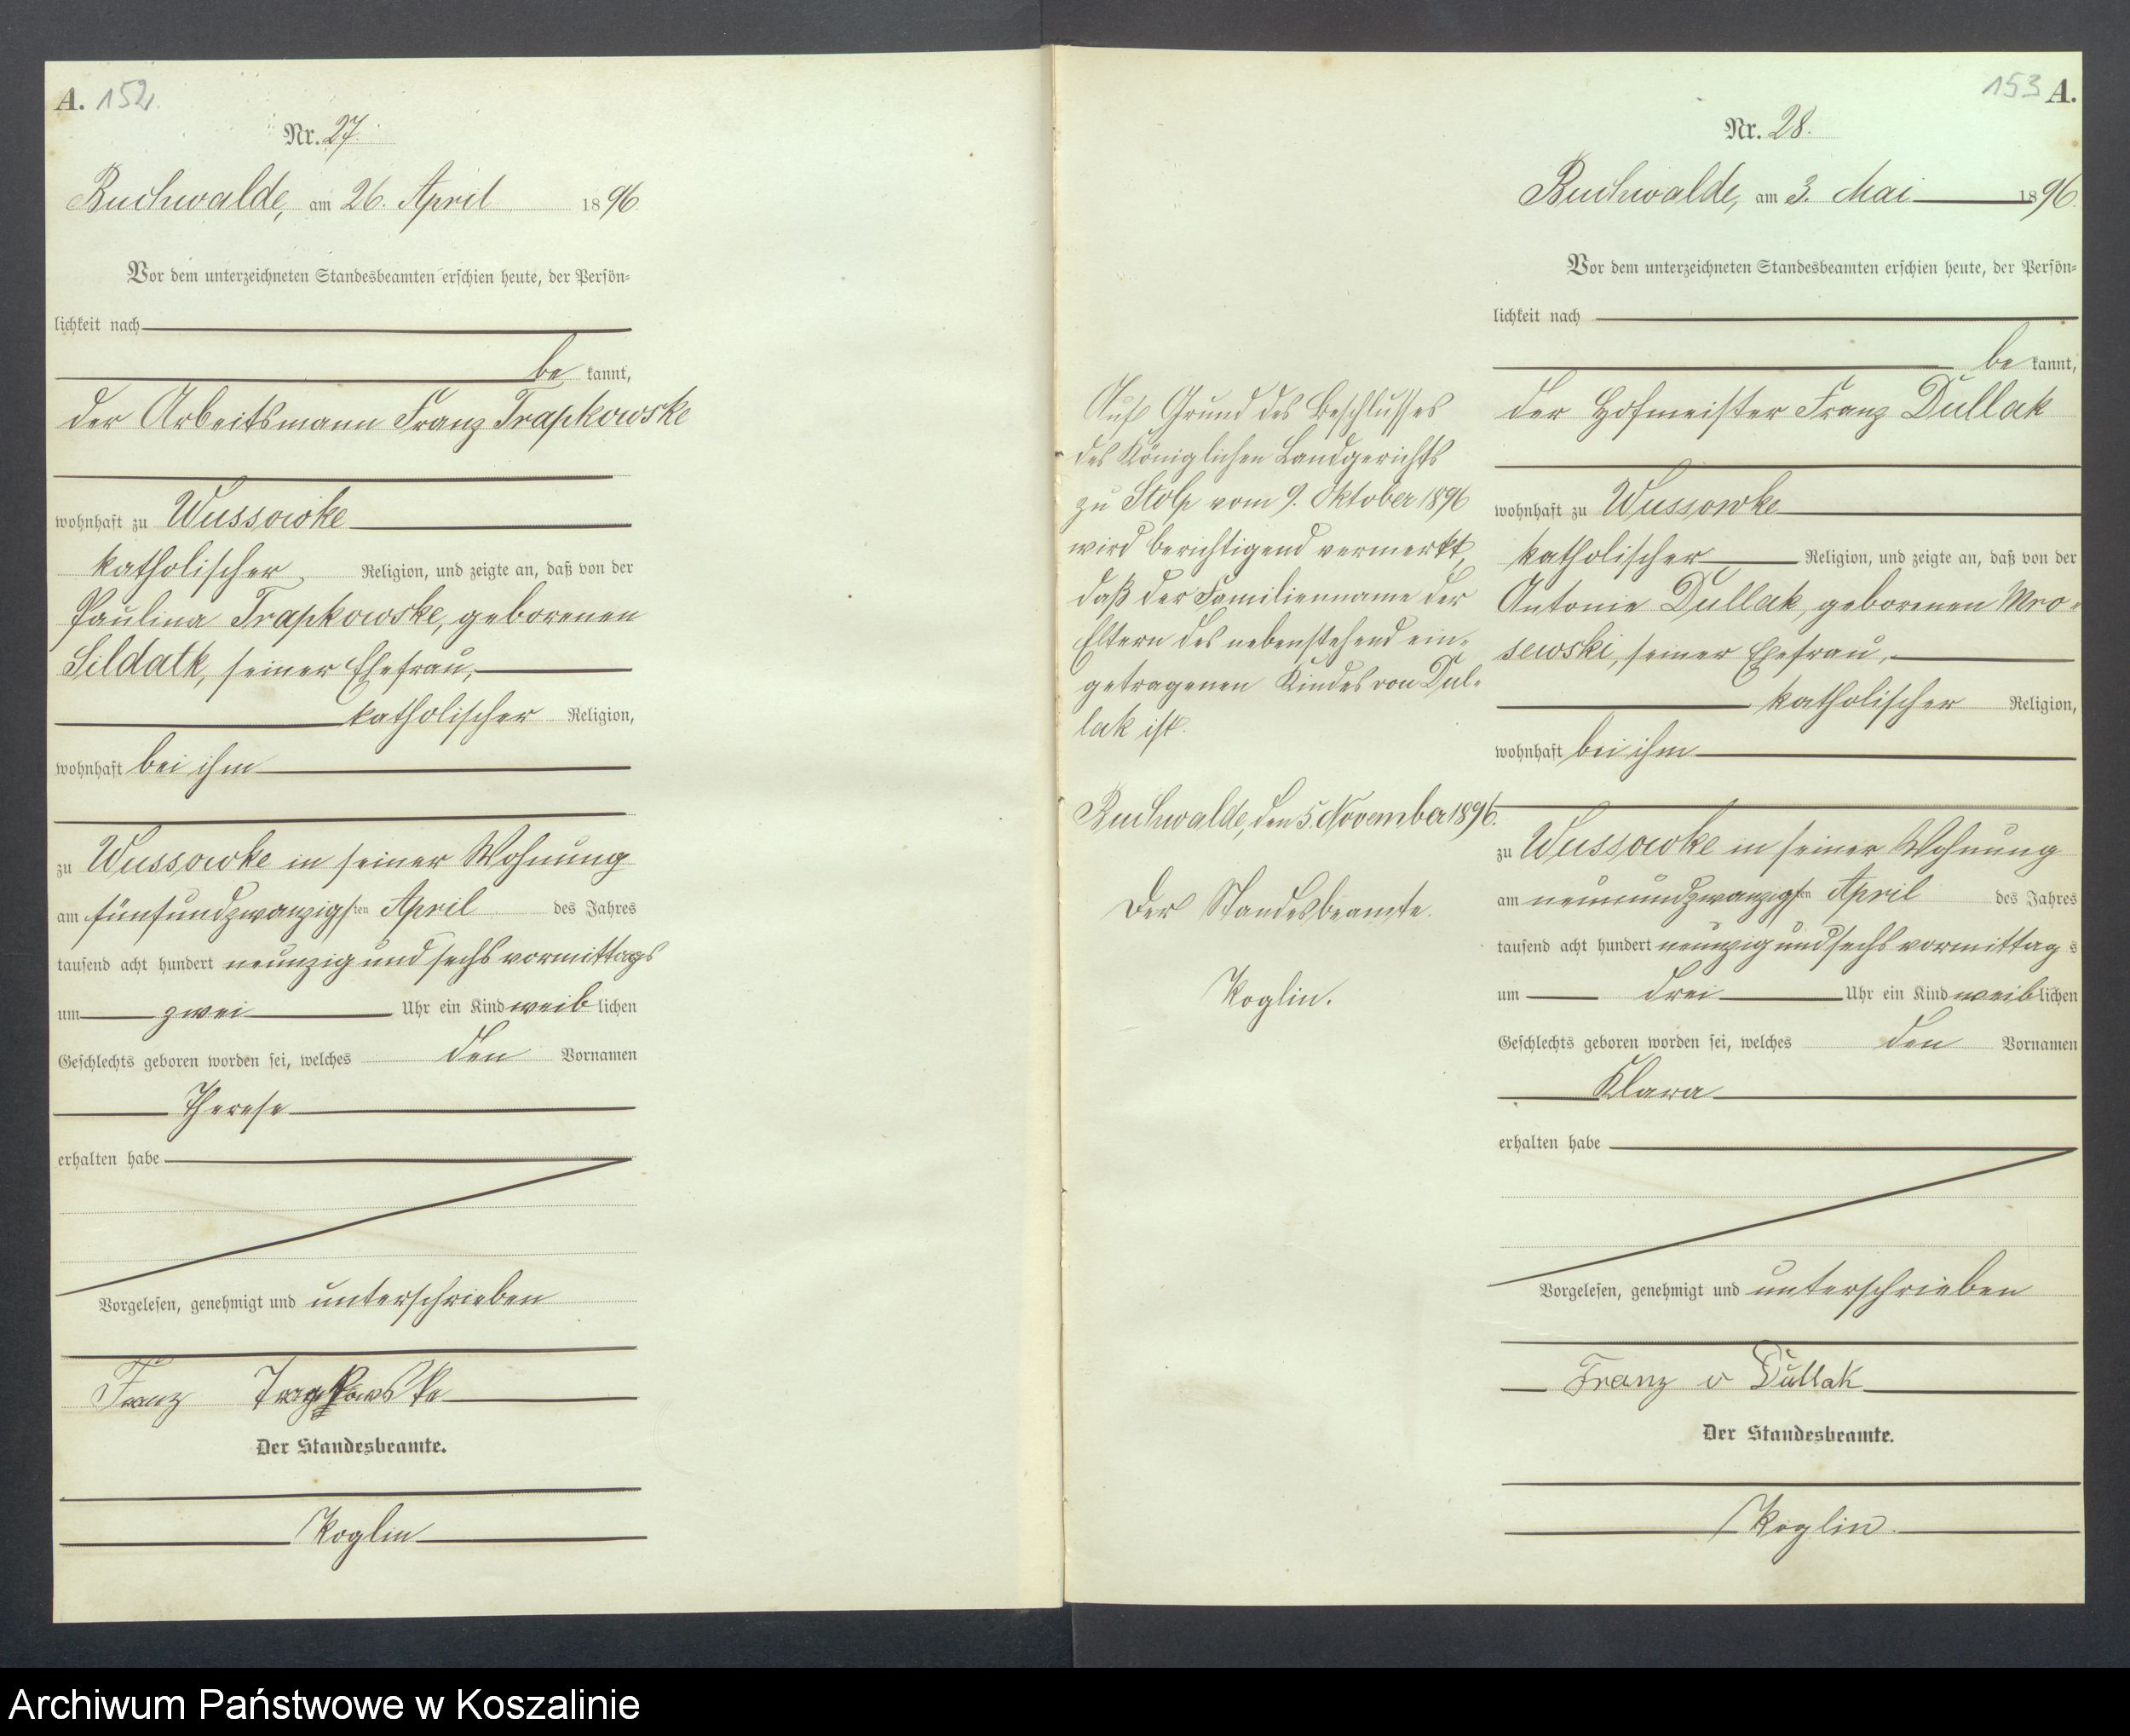 A. 152.
Nr. 27.
Buchwalde, am 26. April 1896.
Vor dem unterzeichneten Standesbeamten erschien heute, der Persön-
lichkeit nach
be kannt,
der Arbeitsmann Franz Trapkowske
wohnhaft zu Wussowke
katholischer Religion, und zeigte an, daß von der
Paulina Trapkowske, geborenen
Sildatk, seiner Ehefrau,
katholischer Religion,
wohnhaft bei ihm
zu Wussowke in seiner Wohnung
am fünfundzwanzigsten April des Jahres
tausend acht hundert neunzig und sechs vormittags
um zwei Uhr ein Kind weiblichen
Geschlechts geboren worden sei, welches den Vornamen
Therese
erhalten habe
Vorgelesen, genehmigt und unterschrieben
Franz Trapkowske
Der Standesbeamte.
Koglin
Auf Grund des Beschlusses
des Königlichen Landgerichts
zu Stolp vom 9. Oktober 1896
wird berichtigend vermerkt,
daß der Familienname der
Eltern des nebenstehend ein-
getragenen Kindes von Dul-
lak ist.
Buchwalde, den 5. November 1896.
Der Standesbeamte.
Koglin.
153 A.
Nr. 28.
Buchwalde, am 3. Mai 1896.
Vor dem unterzeichneten Standesbeamten erschien heute, der Persön-
lichkeit nach
be kannt,
der Hofmeister Franz Dullak
wohnhaft zu Wussowke
katholischer Religion, und zeigte an, daß von der
Antonie Dullak, geborenen Mro-
sewski, seiner Ehefrau,
katholischer Religion,
wohnhaft bei ihm
zu Wussowke in seiner Wohnung
am neunundzwanzigsten April des Jahres
tausend acht hundert neunzig und sechs vormittags
um drei Uhr ein Kind weiblichen
Geschlechts geboren worden sei, welches den Vornamen
Klara
erhalten habe
Vorgelesen, genehmigt und unterschrieben
Franz v Dullak
Der Standesbeamte.
Koglin.
Archiwum Państwowe w Koszalinie